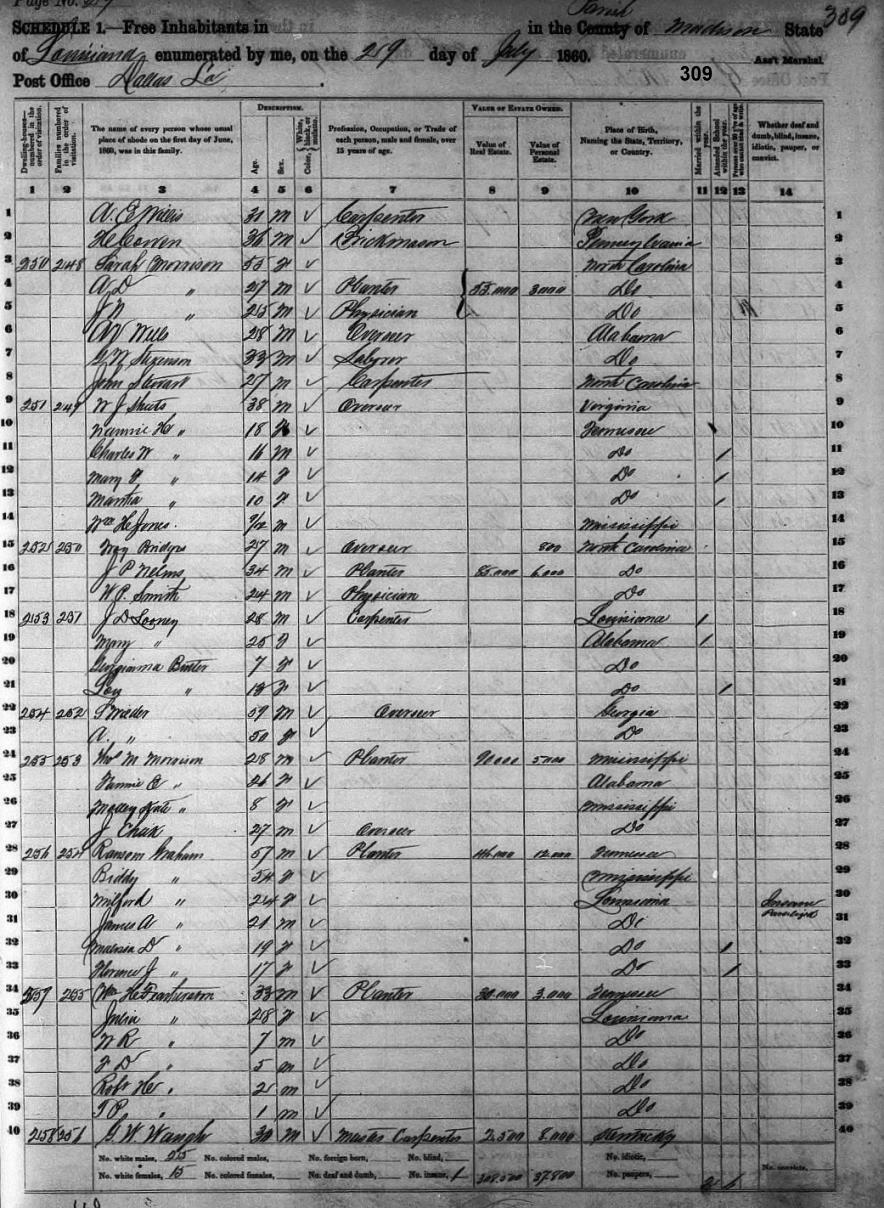 Page No.
SCHEDULE 1.—Free Inhabitants in in the County of Parish Madison State 309
of Louisiana enumerated by me, on the 29 day of July 1860. Ass't Marshal
Post Office Dallas La 309
DESCRIPTION. VALUE OF ESTATE OWNED.
Dwelling-houses—numbered in the order of visitation. Families numbered in the order of visitation. The name of every person whose usual place of abode on the first day of June, 1860, was in this family. Age. Sex. Color, White, black, or mulatto. Profession, Occupation, or Trade of each person, male and female, over 15 years of age. Value of Real Estate. Value of Personal Estate. Place of Birth, Naming the State, Territory, or Country. Married within the year. Attended School within the year. Whether deaf and dumb, blind, insane, idiotic, pauper, or convict.
1 2 3 4 5 6 7 8 9 10 11 12 13 14
1 A. E. Willis 31 m ✓ Carpenter New York 1
2 36 m ✓ Brickmason Pennsylvania 2
3 250 248 Sarah Morrison 55 f ✓ North Carolina 3
4 A. D " 27 m ✓ Planter 55.000 3000 Do 4
5 J N " 25 m ✓ Physician Do 5
6 Wells 28 m ✓ Overseer Alabama 6
7 G. N. Stevenson 33 m ✓ Laborer Do 7
8 John Stewart 27 m ✓ Carpenter North Carolina 8
9 251 249 W J Sheets 38 m ✓ Overseer Virginia 9
10 Nannie H " 18 f ✓ Tennessee 10
11 Charles W " 16 m ✓ Do / 11
12 Mary F " 14 f ✓ Do / 12
13 Martha " 10 f ✓ Do / 13
14 Wm H Jones 9/12 m ✓ Mississippi 14
15 252 250 Bridges 27 m ✓ Overseer 800 North Carolina 15
16 J P Nelms 34 m ✓ Planter 85.000 6.000 Do 16
17 W. P. Smith 24 m ✓ Physician Do 17
18 253 251 J D Looney 28 m ✓ Carpenter Louisiana / 18
19 Mary " 25 f ✓ Alabama / 19
20 Georgianna Butler 7 f ✓ Do 20
21 Lou " 13 f ✓ Do / 21
22 254 252 59 m ✓ Overseer Georgia 22
23 A. " 50 f ✓ Do 23
24 255 253 Thos M Morrison 28 m ✓ Planter 90000 5000 Mississippi 24
25 Fannie E " 26 f ✓ Alabama 25
26 Molley Kate " 8 f ✓ Mississippi 26
27 J 27 m ✓ Overseer Do 27
28 256 254 Ransom Graham 57 m ✓ Planter 12.000 Tennessee 28
29 Biddy " 54 f ✓ Mississippi 29
30 Milford " 24 f ✓ Louisiana Insane 30
31 James A " 21 m ✓ Do 31
32 D " 19 f ✓ Do / 32
33 Florence J " 17 f ✓ Do / 33
34 257 255 Wm H 33 m ✓ Planter 30.000 3.000 Tennessee 34
35 Julia " 28 f ✓ Louisiana 35
36 W R " 7 m ✓ Do 36
37 F D " 5 m ✓ Do 37
38 Robt He " 2 m ✓ Do 38
39 T P. " 1 m ✓ Do 39
40 258 256 G. W. Waugh 30 m ✓ Master Carpenter 2.500 8.000 Kentucky 40
No. white males, 25 No. colored males, No. foreign born, No. blind, No. idiotic,
No. white females, 15 No. colored females, No. deaf and dumb, No. insane, 1 308.500 37.800 No. paupers, 2 6 No. convicts,